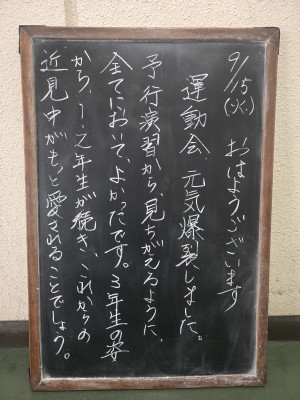 9/15(火)、おはようございます
運動会、元気爆裂しました。
予行演習から、見ちがえるように、
全てにおいて、よかったです。3年生の姿
から、1・2年生が続き、これからの
近見中がもっと愛されることでしょう。